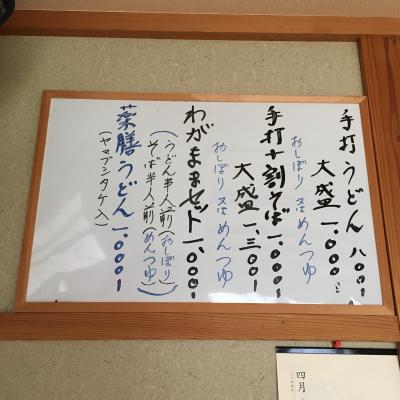 手打うどん 八〇〇ー
大盛 一、〇〇〇ー
おしぼり 又は めんつゆ
手打十割そば 一、〇〇〇ー
大盛 一、三〇〇ー
おしぼり 又は めんつゆ
わがままセット 一、〇〇〇ー
(うどん半人前(おしぼり)
そば半人前(めんつゆ))
薬膳うどん 一、〇〇〇ー
(ヤマブシタケ入)
四月